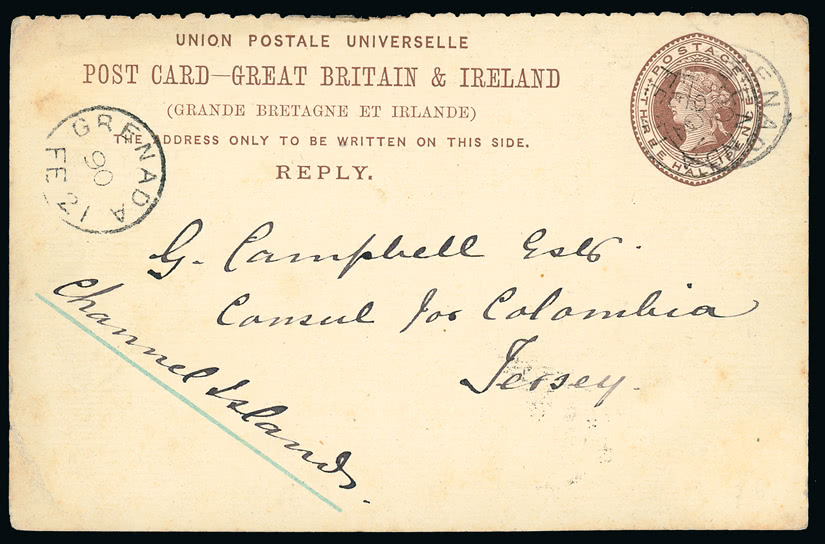 UNION POSTALE UNIVERSELLE
POST CARD—GREAT BRITAIN & IRELAND
(GRANDE BRETAGNE ET IRLANDE)
THE ADDRESS ONLY TO BE WRITTEN ON THIS SIDE.
REPLY.
GRENADA
90
FE 21
POSTAGE
THREE HALFPENCE
G. Campbell Esqr.
Consul for Colombia
Jersey.
Channel Islands.